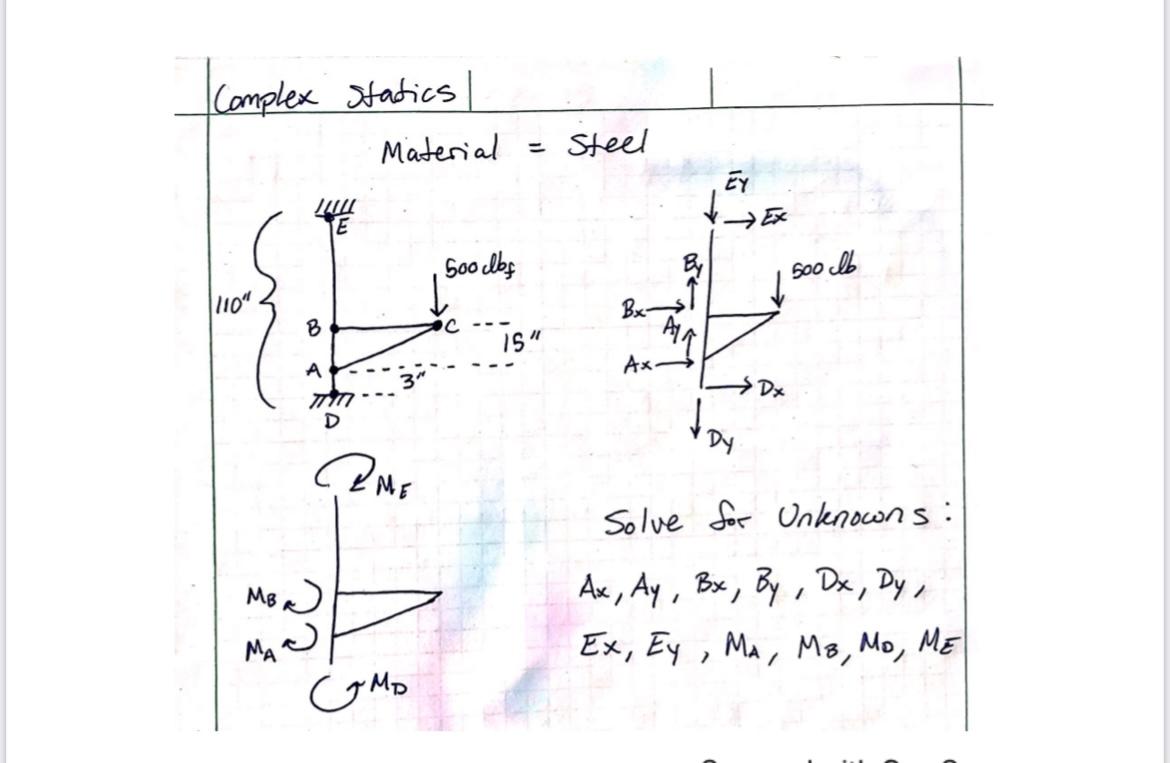 Complex Statics
Material = Steel
E
500 lbf
110"
B
C
15"
A
3"
D
Ey
Ex
By
500 lb
Bx
Ay
Ax
Dx
Dy
ME
MB
MA
MD
Solve for Unknowns:
Ax, Ay, Bx, By, Dx, Dy,
Ex, Ey, MA, MB, MD, ME